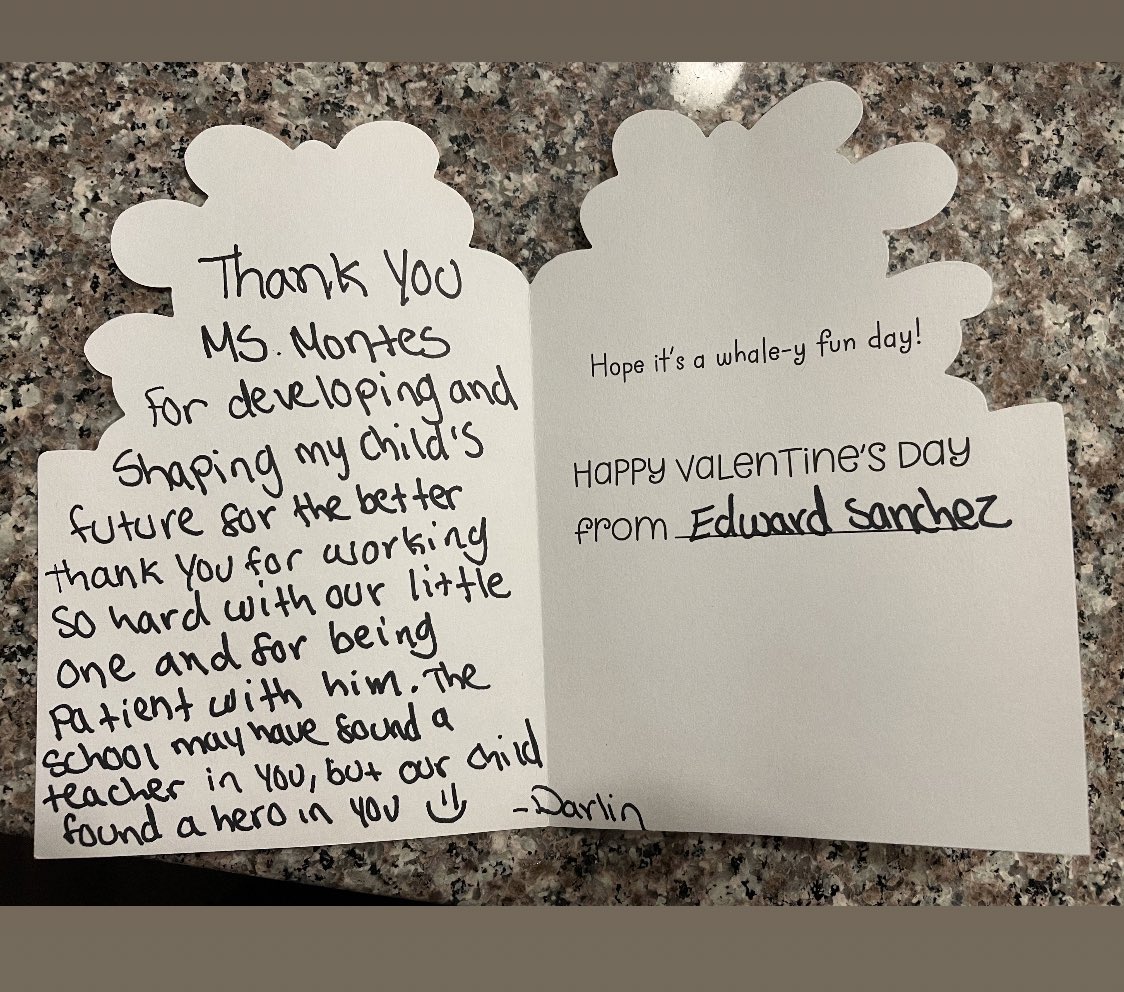 Thank You
MS. Montes
for developing and
Shaping my child's
future for the better
thank you for working
so hard with our little
one and for being
Patient with him. The
school may have found a
teacher in you, but our child
found a hero in you
-Darlin
Hope it's a whale-y fun day!
Happy Valentine's Day
from Edward Sanchez